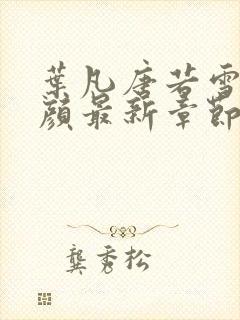 葉凡唐若雪
顏最新章節
龔秀松